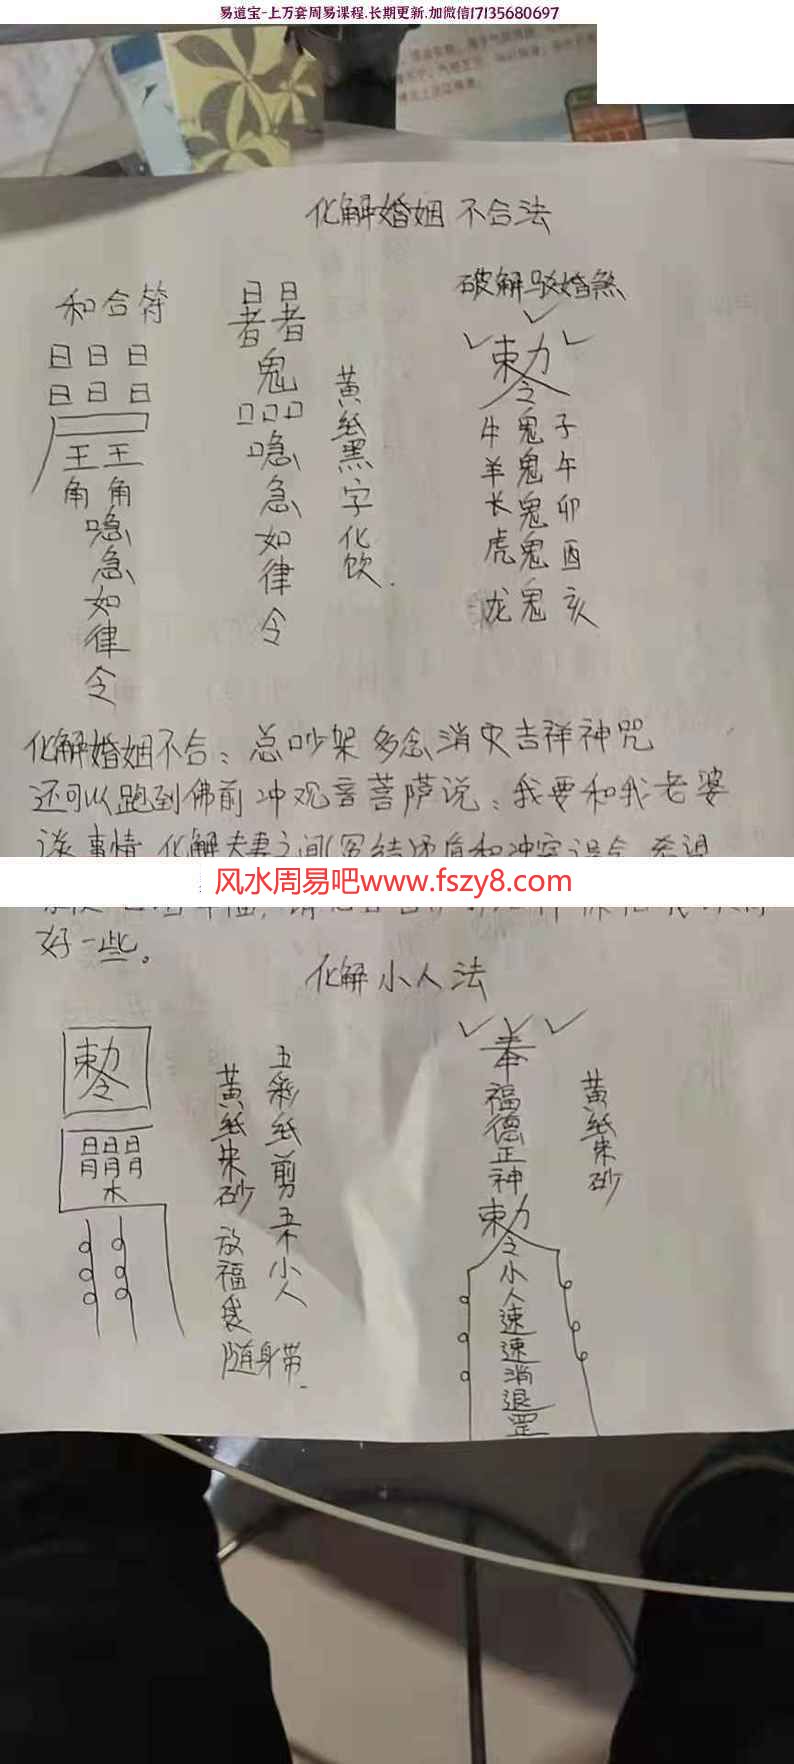 易道宝-上万套周易课程.长期更新.加微信17135680697
化解婚姻不合法
和合符
日日日
日日日
王王
角角
唸急如律令
日日
者者
鬼
口口口
唸急如律令
黄纸黑字化饮.
破解驳婚煞
敕令
牛鬼子
羊鬼午
长鬼卯
虎鬼酉
龙鬼亥
化解婚姻不合:总吵架多念消灾吉祥神咒
还可以跑到佛前冲观音菩萨说:我要和我老婆
谈事情,化解夫妻之间
风水周易吧www.fszy8.com
好一些。
化解小人法
敕令
日日日
月月月
木
五彩纸剪五个小人
黄纸朱砂放福袋
随身带.
奉福德正神敕令小人速速消退罡
黄纸朱砂